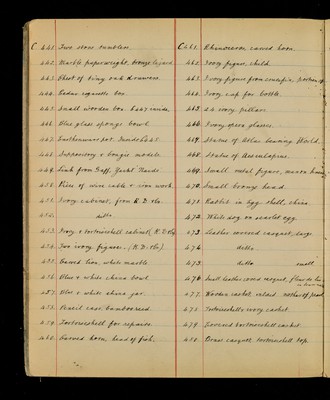 C 441. Two stone tumblers.
442. Marble paperweight, bronze lizard.
443. Chest of tiny oak drawers.
444. Cedar cigarette box
445. Small wooden box
446. Blue glass sponge bowl
447. Earthenware pot.
448. Suppository & bougie models.
449. Link from Yacht
450. Piece of wire cable & iron work.
451. Ivory cabinet, from R.D.
452. ditto.
453. Ivory & tortoiseshell cabinet (R.D.
454. Two ivory figures. (R.D.
455. Carved lion, white marble
456. Blue & white china bowl
457. Blue & white china jar.
458. Pencil case, bamboo
459. Tortoiseshell for repairs.
460. Carved horn, head of fish.
C 461. Rhinoceros, carved horn.
462. Ivory figure, child.
463. Ivory figure from crucifix, portion of
464. Ivory cap for bottle.
465. 24 ivory pillars.
466. Ivory opera glasses.
467. Statue of Atlas bearing World.
468. Statue of Aesculapius.
469. Small metal figure,
470. Small bronze head.
471. Rabbit in egg shell, china.
472. White dog on scarlet egg.
473. Leather covered casquet, large
474. ditto
475. ditto small
476. Small leather covered casquet,
477. Wooden casket inlaid mother of pearl
478. Tortoiseshell & ivory casket.
479. Covered tortoiseshell casket.
480. casquet tortoiseshell top.